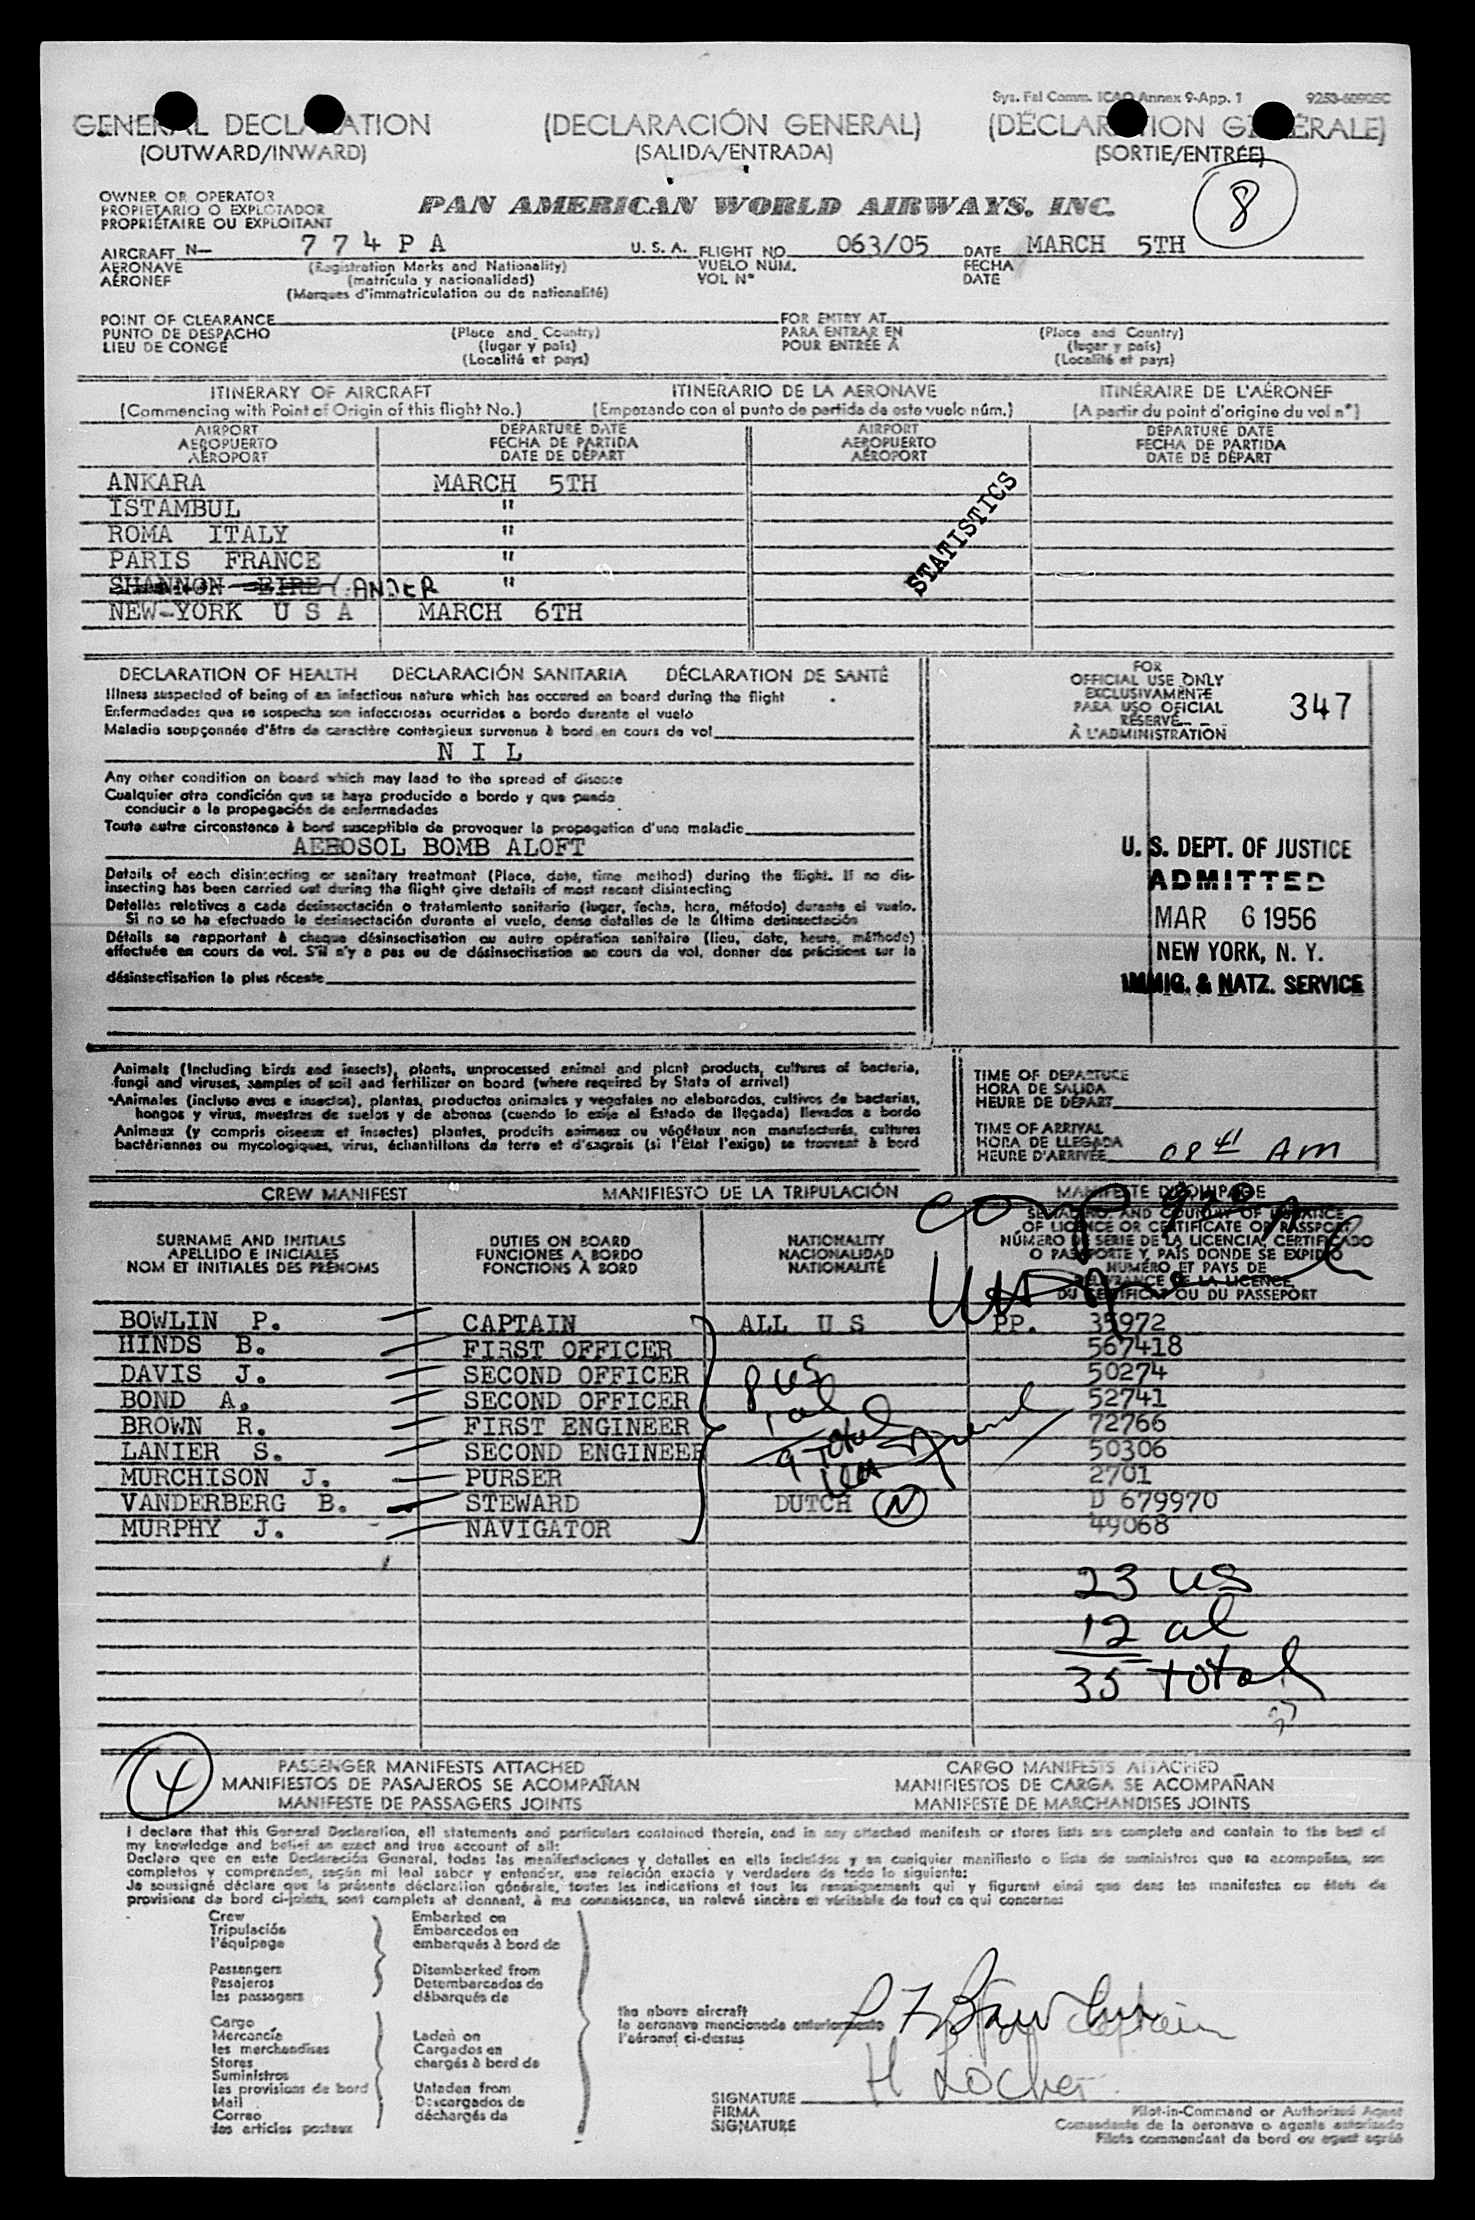 Sys. Fal Comm. ICAO Annex 9-App. 1
GENERAL DECLARATION (DECLARACIÓN GENERAL) (DÉCLARATION GÉNÉRALE)
(OUTWARD/INWARD) (SALIDA/ENTRADA) (SORTIE/ENTRÉE)
8
OWNER OR OPERATOR
PROPIETARIO O EXPLOTADOR
PROPRIÉTAIRE OU EXPLOITANT
PAN AMERICAN WORLD AIRWAYS, INC.
AIRCRAFT N— 7 7 4 P A U. S. A. FLIGHT NO. 063/05 DATE MARCH 5TH
AERONAVE (Registration Marks and Nationality) VUELO NÚM. FECHA
AÉRONEF (matrícula y nacionalidad) VOL N° DATE
(Marques d'immatriculation ou de nationalité)
POINT OF CLEARANCE FOR ENTRY AT
PUNTO DE DESPACHO (Place and Country) PARA ENTRAR EN (Place and Country)
LIEU DE CONGÉ (lugar y país) POUR ENTRÉE À (lugar y país)
(Localité et pays) (Localité et pays)
ITINERARY OF AIRCRAFT ITINERARIO DE LA AERONAVE ITINÉRAIRE DE L'AÉRONEF
(Commencing with Point of Origin of this flight No.) (Empezando con el punto de partida de este vuelo núm.) (A partir du point d'origine du vol n°)
AIRPORT DEPARTURE DATE AIRPORT DEPARTURE DATE
AEROPUERTO FECHA DE PARTIDA AEROPUERTO FECHA DE PARTIDA
AÉROPORT DATE DE DÉPART AÉROPORT DATE DE DÉPART
ANKARA MARCH 5TH
ISTAMBUL "
ROMA ITALY "
PARIS FRANCE "
SHANNON EIRE GANDER "
NEW-YORK U S A MARCH 6TH
STATISTICS
DECLARATION OF HEALTH DECLARACIÓN SANITARIA DÉCLARATION DE SANTÉ
Illness suspected of being of an infectious nature which has occured on board during the flight
Enfermedades que se sospecha son infecciosas ocurridas a bordo durante el vuelo
Maladie soupçonnée d'être de caractère contagieux survenue à bord en cours de vol
N I L
Any other condition on board which may lead to the spread of disease
Cualquier otra condición que se haya producido a bordo y que pueda
conducir a la propagación de enfermedades
Toute autre circonstance à bord susceptible de provoquer la propagation d'une maladie
AEROSOL BOMB ALOFT
Details of each disinsecting or sanitary treatment (Place, date, time method) during the flight. If no dis-
insecting has been carried out during the flight give details of most recent disinsecting
Detalles relativos a cada desinsectación o tratamiento sanitario (lugar, fecha, hora, método) durante el vuelo.
Si no se ha efectuado la desinsectación durante el vuelo, dense detalles de la última desinsectación
Détails se rapportant à chaque désinsectisation ou autre opération sanitaire (lieu, date, heure, méthode)
effectuée en cours de vol. S'il n'y a pas eu de désinsectisation en cours de vol, donner des précisions sur la
désinsectisation la plus récente
FOR
OFFICIAL USE ONLY
EXCLUSIVAMENTE
PARA USO OFICIAL
RÉSERVÉ
À L'ADMINISTRATION
347
U. S. DEPT. OF JUSTICE
ADMITTED
MAR 6 1956
NEW YORK, N. Y.
IMMIG. & NATZ. SERVICE
Animals (Including birds and insects), plants, unprocessed animal and plant products, cultures of bacteria,
fungi and viruses, samples of soil and fertilizer on board (where required by State of arrival)
Animales (incluso aves e insectos), plantas, productos animales y vegetales no elaborados, cultivos de bacterias,
hongos y virus, muestras de suelos y de abonos (cuando lo exija el Estado de llegada) llevados a bordo
Animaux (y compris oiseaux et insectes) plantes, produits animaux ou végétaux non manufacturés, cultures
bactériennes ou mycologiques, virus, échantillons de terre et d'engrais (si l'État l'exige) se trouvant à bord
TIME OF DEPARTURE
HORA DE SALIDA
HEURE DE DÉPART
TIME OF ARRIVAL
HORA DE LLEGADA
HEURE D'ARRIVÉE 08 41 AM
CREW MANIFEST MANIFIESTO DE LA TRIPULACIÓN MANIFESTE D'ÉQUIPAGE
SURNAME AND INITIALS DUTIES ON BOARD NATIONALITY
APELLIDO E INICIALES FUNCIONES A BORDO NACIONALIDAD
NOM ET INITIALES DES PRÉNOMS FONCTIONS À BORD NATIONALITÉ
SERIAL NO. AND COUNTRY OF ISSUANCE
OF LICENCE OR CERTIFICATE OR PASSPORT
NÚMERO DE SERIE DE LA LICENCIA, CERTIFICADO
O PASAPORTE Y PAÍS DONDE SE EXPIDIÓ
NUMÉRO ET PAYS DE
DÉLIVRANCE DE LA LICENCE
DU CERTIFICAT OU DU PASSEPORT
BOWLIN P. CAPTAIN ALL U S PP. 35972
HINDS B. FIRST OFFICER 567418
DAVIS J. SECOND OFFICER 50274
BOND A. SECOND OFFICER 52741
BROWN R. FIRST ENGINEER 72766
LANIER S. SECOND ENGINEER 50306
MURCHISON J. PURSER 2701
VANDERBERG B. STEWARD DUTCH N D 679970
MURPHY J. NAVIGATOR 49068
8 us
1 al
9 total
23 us
12 al
35 total
4
PASSENGER MANIFESTS ATTACHED CARGO MANIFESTS ATTACHED
MANIFIESTOS DE PASAJEROS SE ACOMPAÑAN MANIFIESTOS DE CARGA SE ACOMPAÑAN
MANIFESTE DE PASSAGERS JOINTS MANIFESTE DE MARCHANDISES JOINTS
I declare that this General Declaration, all statements and particulars contained therein, and in any attached manifests or stores lists are complete and contain to the best of
my knowledge and belief an exact and true account of all:
Declaro que en esta Declaración General, todas las manifestaciones y detalles en ella incluidos y en cualquier manifiesto o lista de suministros que se acompañan, son
completos y comprenden, según mi leal saber y entender, una relación exacta y verdadera de todo lo siguiente:
Je soussigné déclare que la présente déclaration générale, toutes les indications et tous les renseignements qui y figurent ainsi que dans les manifestes ou états de
provisions de bord ci-joints, sont complets et donnent, à ma connaissance, un relevé sincère et véritable de tout ce qui concerne:
Crew Embarked on
Tripulación Embarcados en
l'équipage embarqués à bord de
Passengers Disembarked from
Pasajeros Desembarcados de
les passagers débarqués de
the above aircraft
la aeronave mencionada anteriormente
l'aéronef ci-dessus
Cargo
Mercancía Laden on
les merchandises Cargados en
Stores chargés à bord de
Suministros
les provisions de bord Unladen from
Mail Descargados de
Correo déchargés de
des articles postaux
P F Bowlin Captain
H Locher
SIGNATURE
FIRMA
SIGNATURE
Pilot-in-Command or Authorized Agent
Comandante de la aeronave o agente autorizado
Pilote commandant de bord ou agent agréé